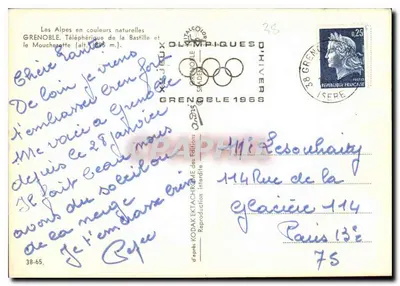 Les Alpes en couleurs naturelles
GRENOBLE. Téléphérique de la Bastille et
le Moucherotte (alt. m.).
Chère Tante
De loin je viens
t'embrasser bien fort
Me voici à Grenoble
depuis le 28 janvier
Il fait beau nous
avons du soleil
de la neige
Je t'embrasse bien
38-65.
JEUX OLYMPIQUES D'HIVER
GRENOBLE 1968
d'après KODAK EKTACHROME des Editions
Reproduction interdite
0,25
REPUBLIQUE FRANÇAISE
38 GRENOBLE
ISERE
114 Rue de la
Glacière 114
Paris 13e
75